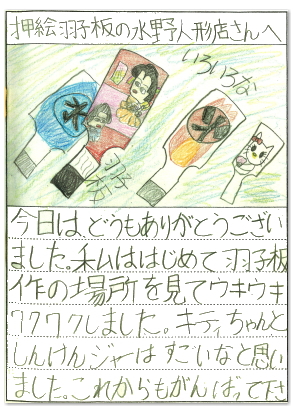 押絵羽子板の水野人形店さんへ
いろいろな
羽子板
今日は、どうもありがとうござい
ました。私ははじめて羽子板
作の場所を見てウキウキ
ワクワクしました。キティちゃんと
しんけんジャーはすごいなと思い
ました。これからもがんばって下さ